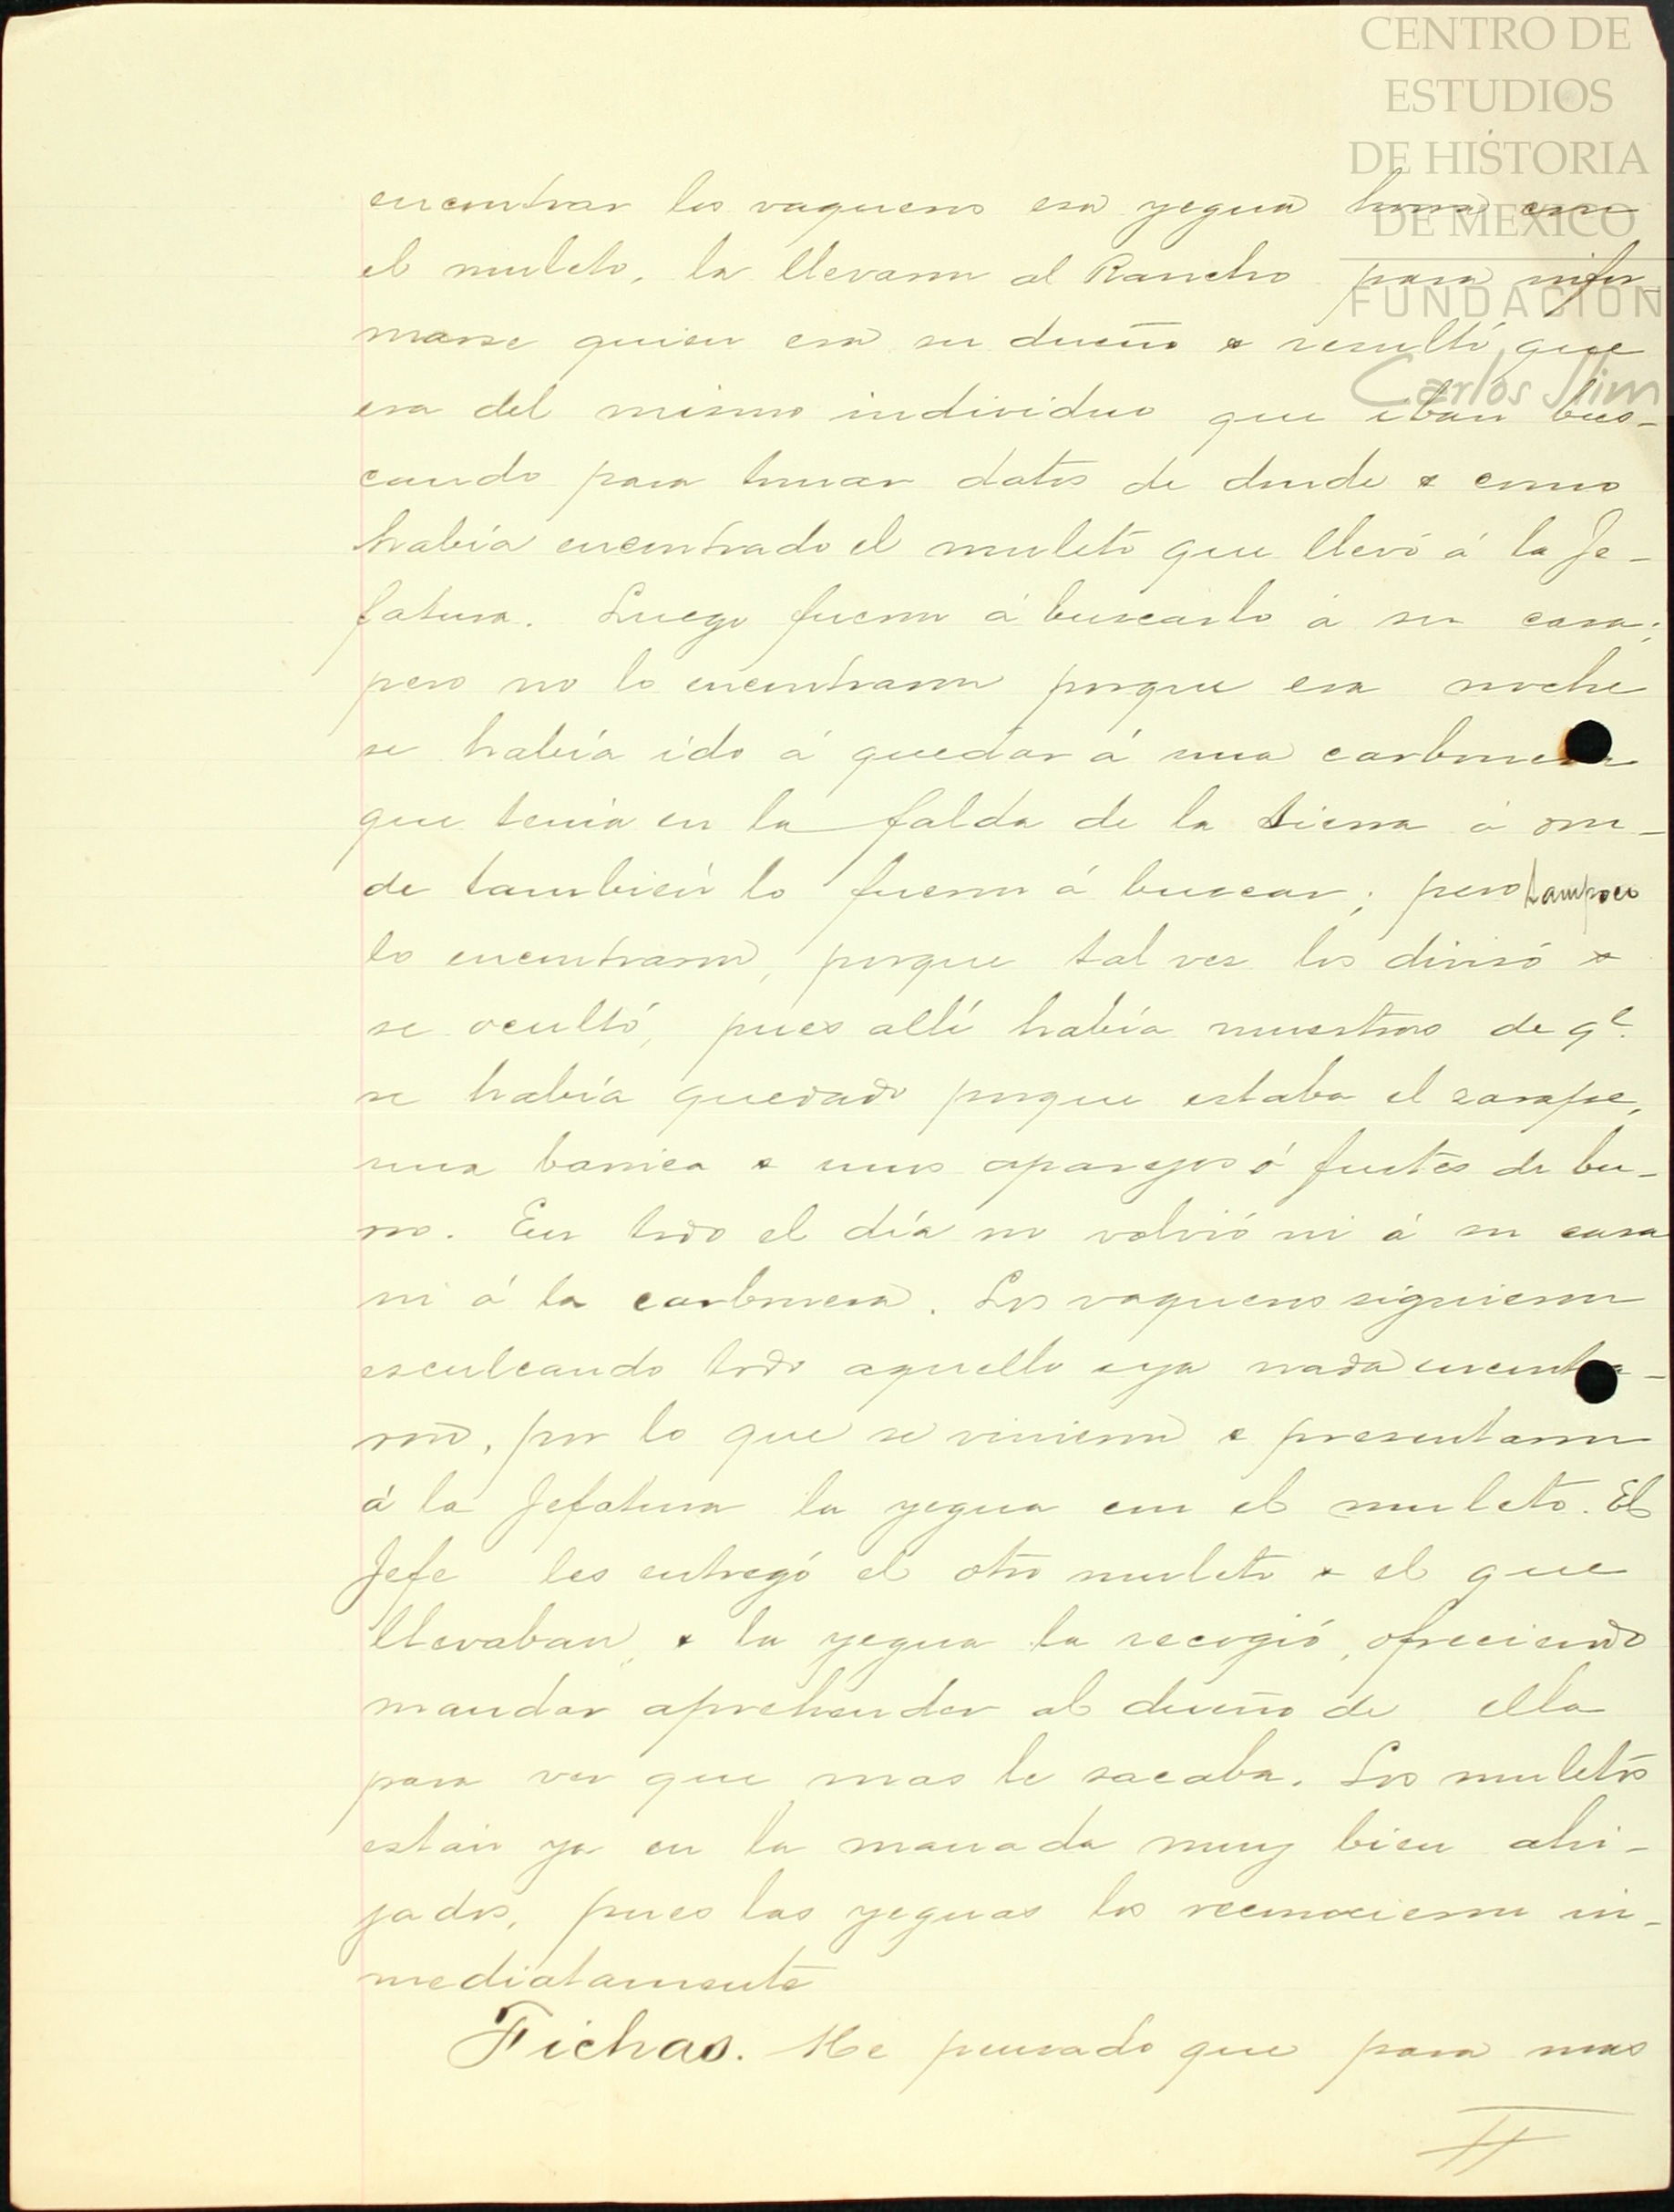 CENTRO DE
ESTUDIOS
DE HISTORIA
DE MEXICO
FUNDACIÓN
Carlos Slim
encontrar los vaqueros esa yegua con
el muleto, la llevaron al Rancho para infor-
marse quien era su dueño & resultó que
era del mismo individuo que iban bus-
cando para tomar datos de donde & como
había encontrado el muleto que llevó á la Je-
fatura. Luego fueron á buscarlo á su casa;
pero no lo encontraron porque esa noche
se había ido á quedar á una carbonera
que tenia en la falda de la Sierra á don-
de también lo fueron á buscar; pero tampoco
lo encontraron, porque tal vez los divisó &
se ocultó, pues allí había muestras de qe.
se había quedado porque estaba el sarape,
una barrica & unos aparejos ó fustes de bu-
rro. En todo el día no volvió ni á su casa
ni á la carbonera. Los vaqueros siguieron
esculcando todo aquello & ya nada encontra-
ron, por lo que se vinieron & presentaron
á la Jefatura la yegua con el muleto. El
Jefe les entregó el otro muleto & el que
llevaban, & la yegua la recogió, ofreciendo
mandar aprehender al dueño de ella
para ver que mas le sacaba. Los muletos
están ya en la manada muy bien ahi-
jados, pues las yeguas los reconocieron in-
mediatamente
Fichas. He pensado que para mas